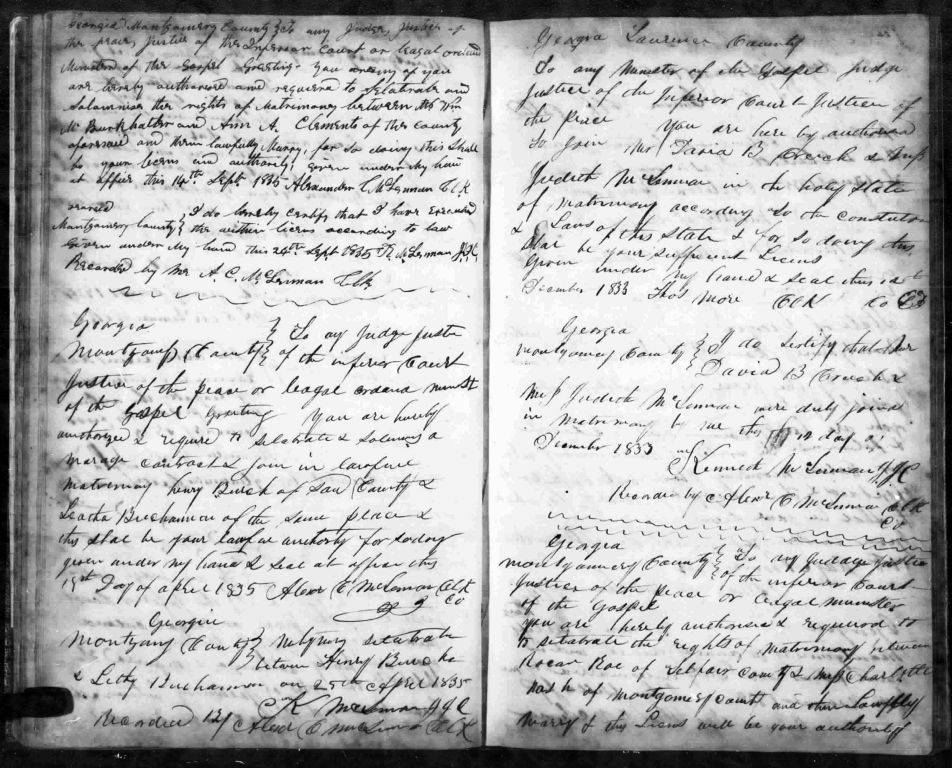 Georgia Montgomery County To any Judge, Justice of
the peace, Justice of the Inferior Court or legal ordained
Minister of the Gospel Greeting. You or any of you
are hereby authorised and required to Selabrate and
Solamnise the rights of Matrimony between Mr Wm
M Burkhalter and Ann A. Clements of this County
aforesaid and them lawfully Marry, for so doing this Shall
be your licens and authority, given under my hand
at office this 14th Sept 1835 Alexander C McLennan Clk
Montgomery County } I do hereby certify that I have Executed
the within licens according to law
Given under my hand this 24th Sept 1835 McLennan
Recorded by me A. C. McLennan Clk
Georgia
Montgomy County } To any Judge Justice
of the inferior Court
Justice of the peace or leagal ordand
of the Gospel Greeting You are hereby
authorized & require to Selabrate & Solemnis a
marage contract & join in lawfull
matrimony henry Burch of said County &
Leatha Buchannon of the same place &
this shal be your lawful authority for so doing
given under my hand & seal at office this
Day of april 1835 Alexr C McLennan Clk
Georgia
Montgomy County }
betwen Henry Burch
& Letty Buchannon on 25th April 1835
K McLennan
Recorded by Alexr C McLennan Clk
Georgia Laurence County
To any Minister of the Gospel Judge
Justice of the Inferior Court Justices of
the peace You are here by authorised
To Join Mr David B Creech & Miss
Judith McLennan in the holy State
of matrimony according to the
& Laws of this State & for so doing this
Shal be your Sufficient Licens
Given under my hand & seal this
December 1833 Thos More Clk
Georgia
Montgomery County } I do Certify that Mr
David B Creech &
Miss Judith McLennan were duly joined
in Matrimony by me this 12 day of
December 1833
Kenneth McLennan
Recorded by Alexr C McLennan Clk
Georgia
Montgomery County } To any Judage justice
of the inferior Court
Justices of the Peace or Leagal minister
of the Gospel
You are hereby authorised & required to
to selabrate the rights of Matrimony between
Roe of County & Miss Charlotte
Nash of Montgomery county and them Lawfully
Marry & this Licens will be your authority